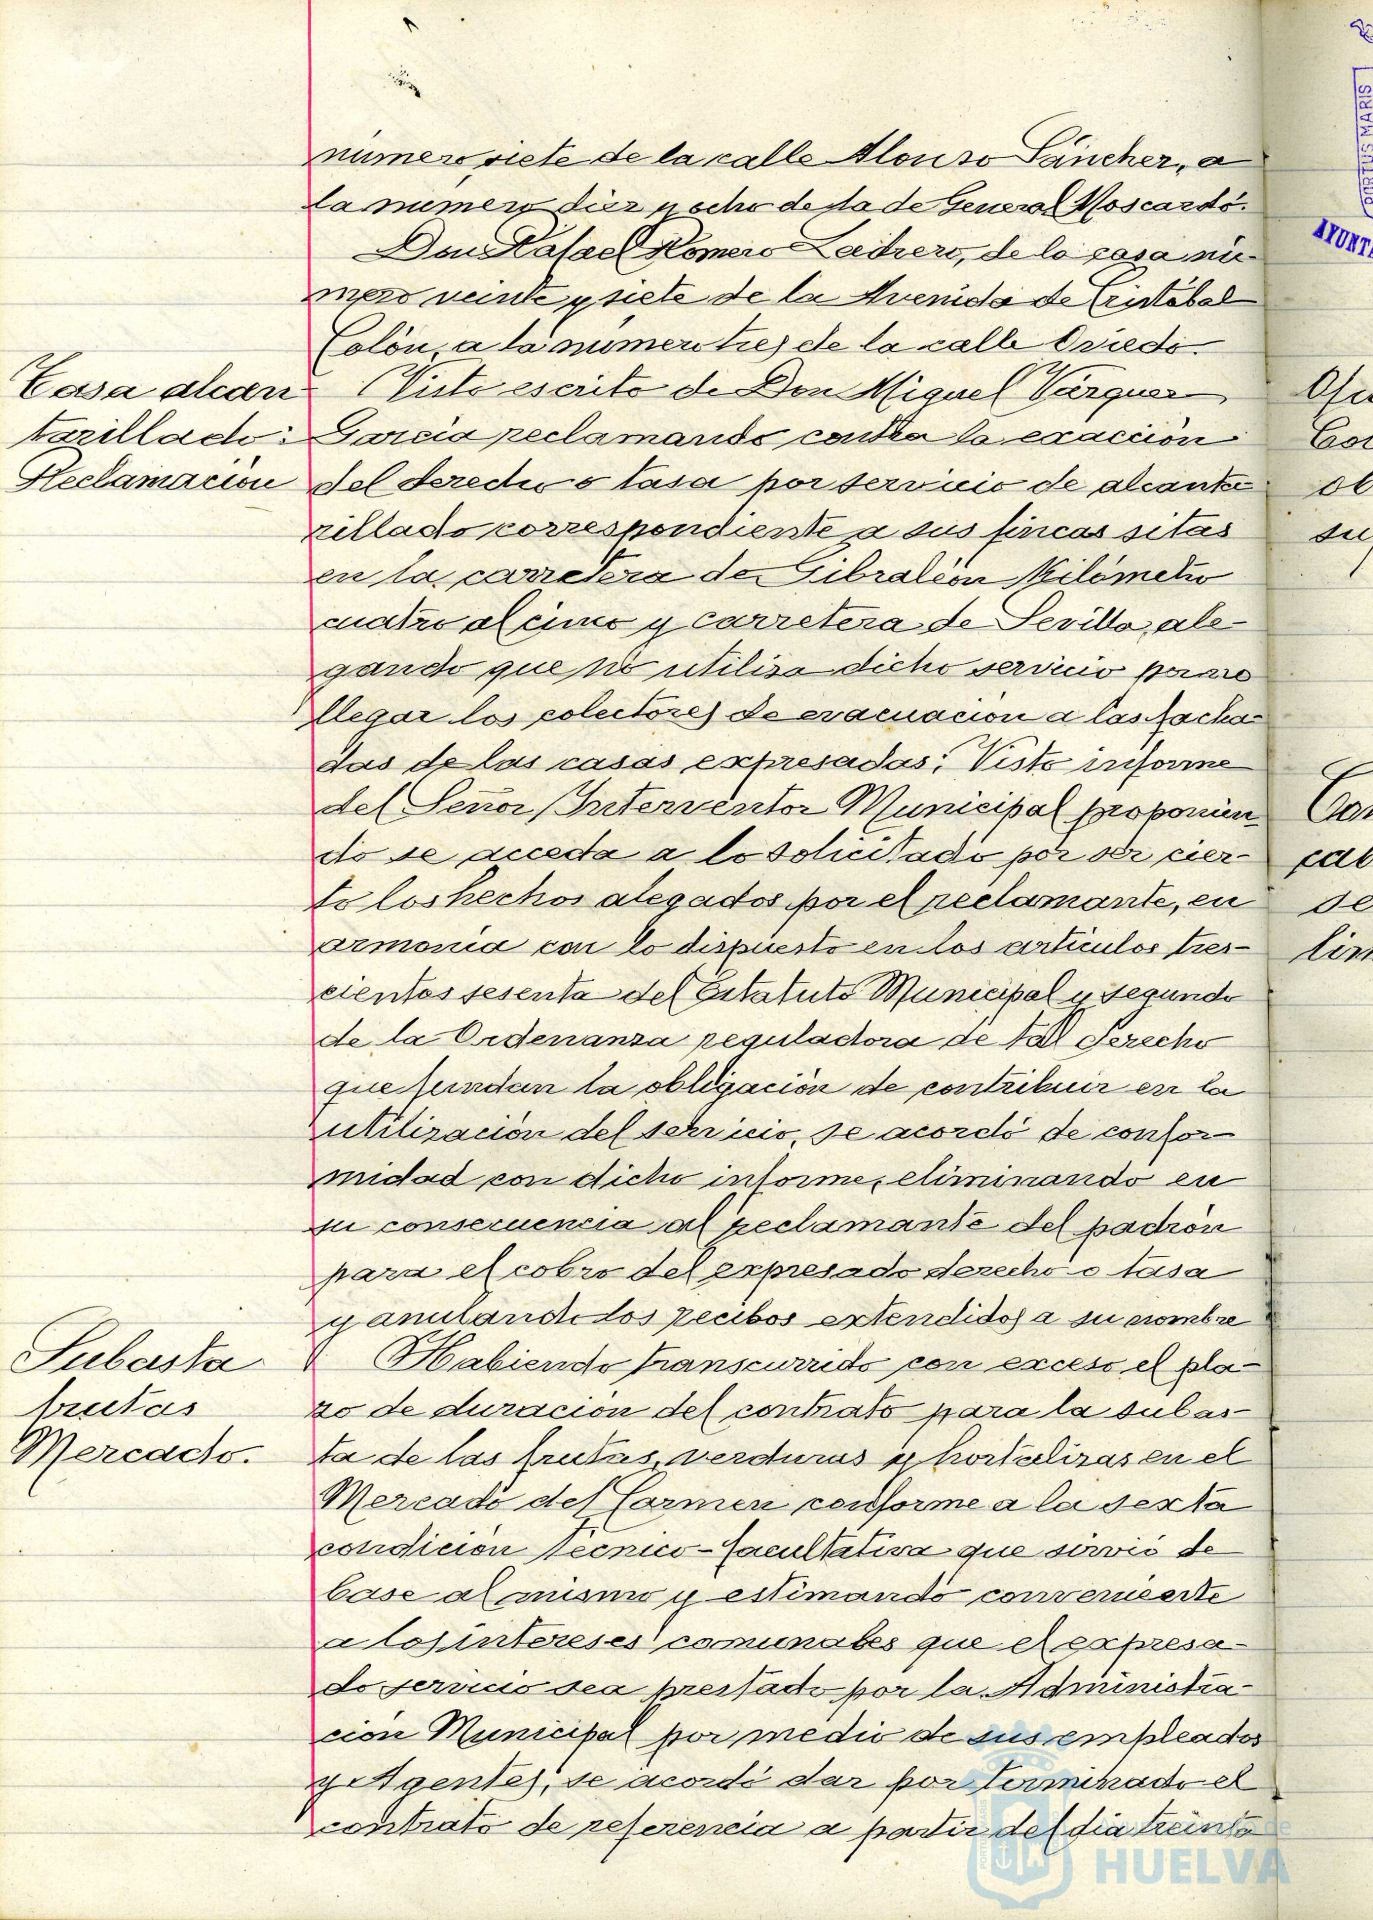 número siete de la calle Alonso Sánchez, a
la número diez y ocho de la de General Moscardó.
Don Rafael Romero Ladrero, de la casa nú-
mero veinte y siete de la Avenida de Cristóbal
Colón, a la número tres de la calle Oviedo.
Tasa alcan
tarillado:
Reclamación
Visto escrito de Don Miguel Vázquez
García reclamando contra la exacción
del derecho o tasa por servicio de alcanta
rillado correspondiente a sus fincas sitas
en la carretera de Gibraleón Kilómetro
cuatro al cinco y carretera de Sevilla, ale-
gando que no utiliza dicho servicio por no
llegar los colectores de evacuación a las facha-
das de las casas expresadas; Visto informe
del Señor Interventor Municipal proponien-
do se acceda a lo solicitado por ser cier-
to los hechos alegados por el reclamante, en
armonía con lo dispuesto en los artículos tres-
cientos sesenta del Estatuto Municipal y segundo
de la Ordenanza reguladora de tal derecho
que fundan la obligación de contribuir en la
utilización del servicio, se acordó de confor-
midad con dicho informe, eliminando en
su consecuencia al reclamante del padrón
para el cobro del expresado derecho o tasa
y anulando los recibos extendidos a su nombre
Subasta
frutas
Mercado.
Habiendo transcurrido con exceso el pla-
zo de duración del contrato para la subas-
ta de las frutas, verduras y hortalizas en el
Mercado del Carmen conforme a la sexta
condición técnico-facultativa que sirvió de
base al mismo y estimando conveniente
a los intereses comunales que el expresa-
do servicio sea prestado por la Administra-
ción Municipal por medio de sus empleados
y Agentes, se acordó dar por terminado el
contrato de referencia a partir del día treinta
PORTUS MARIS
AYUNT
ob
su
se
lim
HUELVA